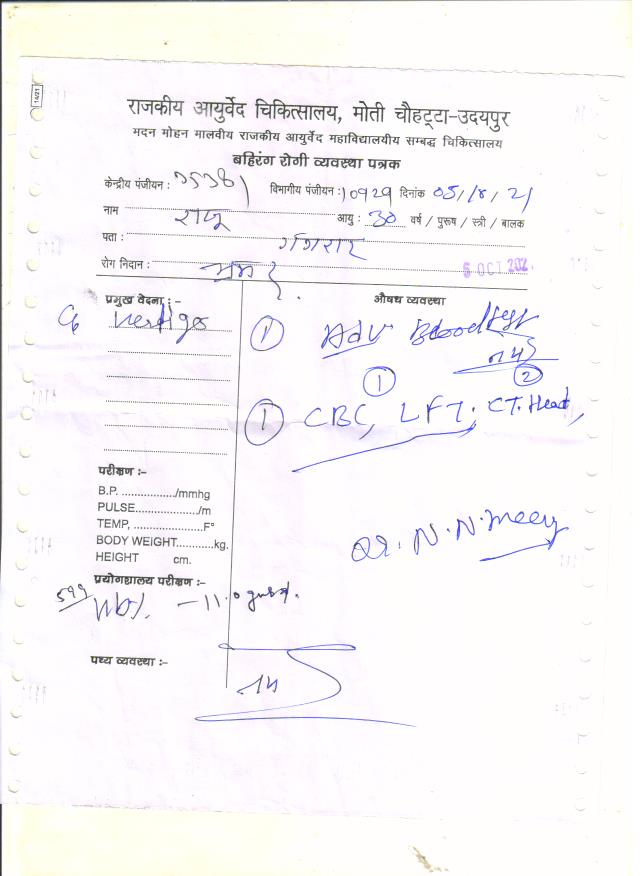 14/21
राजकीय आयुर्वेद चिकित्सालय, मोती चौहट्टा-उदयपुर
मदन मोहन मालवीय राजकीय आयुर्वेद महाविद्यालयीय सम्बद्ध चिकित्सालय
बहिरंग रोगी व्यवस्था पत्रक
केन्द्रीय पंजीयन : विभागीय पंजीयन: 10929 दिनांक
नाम राजू आयु : 30 वर्ष / पुरूष / स्त्री / बालक
पता :
रोग निदान : भ्रम
5 OCT 202
प्रमुख वेदना :- औषध व्यवस्था
Vertigo ① Adv Blood test
① ②
① CBC, LFT, CT. Head,
परीक्षण :-
B.P. ................./mmhg
PULSE................/m
TEMP, ....................F°
BODY WEIGHT...........kg.
HEIGHT cm.
Dr. N. N.
प्रयोगशालय परीक्षण :-
599
Hb%. - 11.0
पथ्य व्यवस्था :-